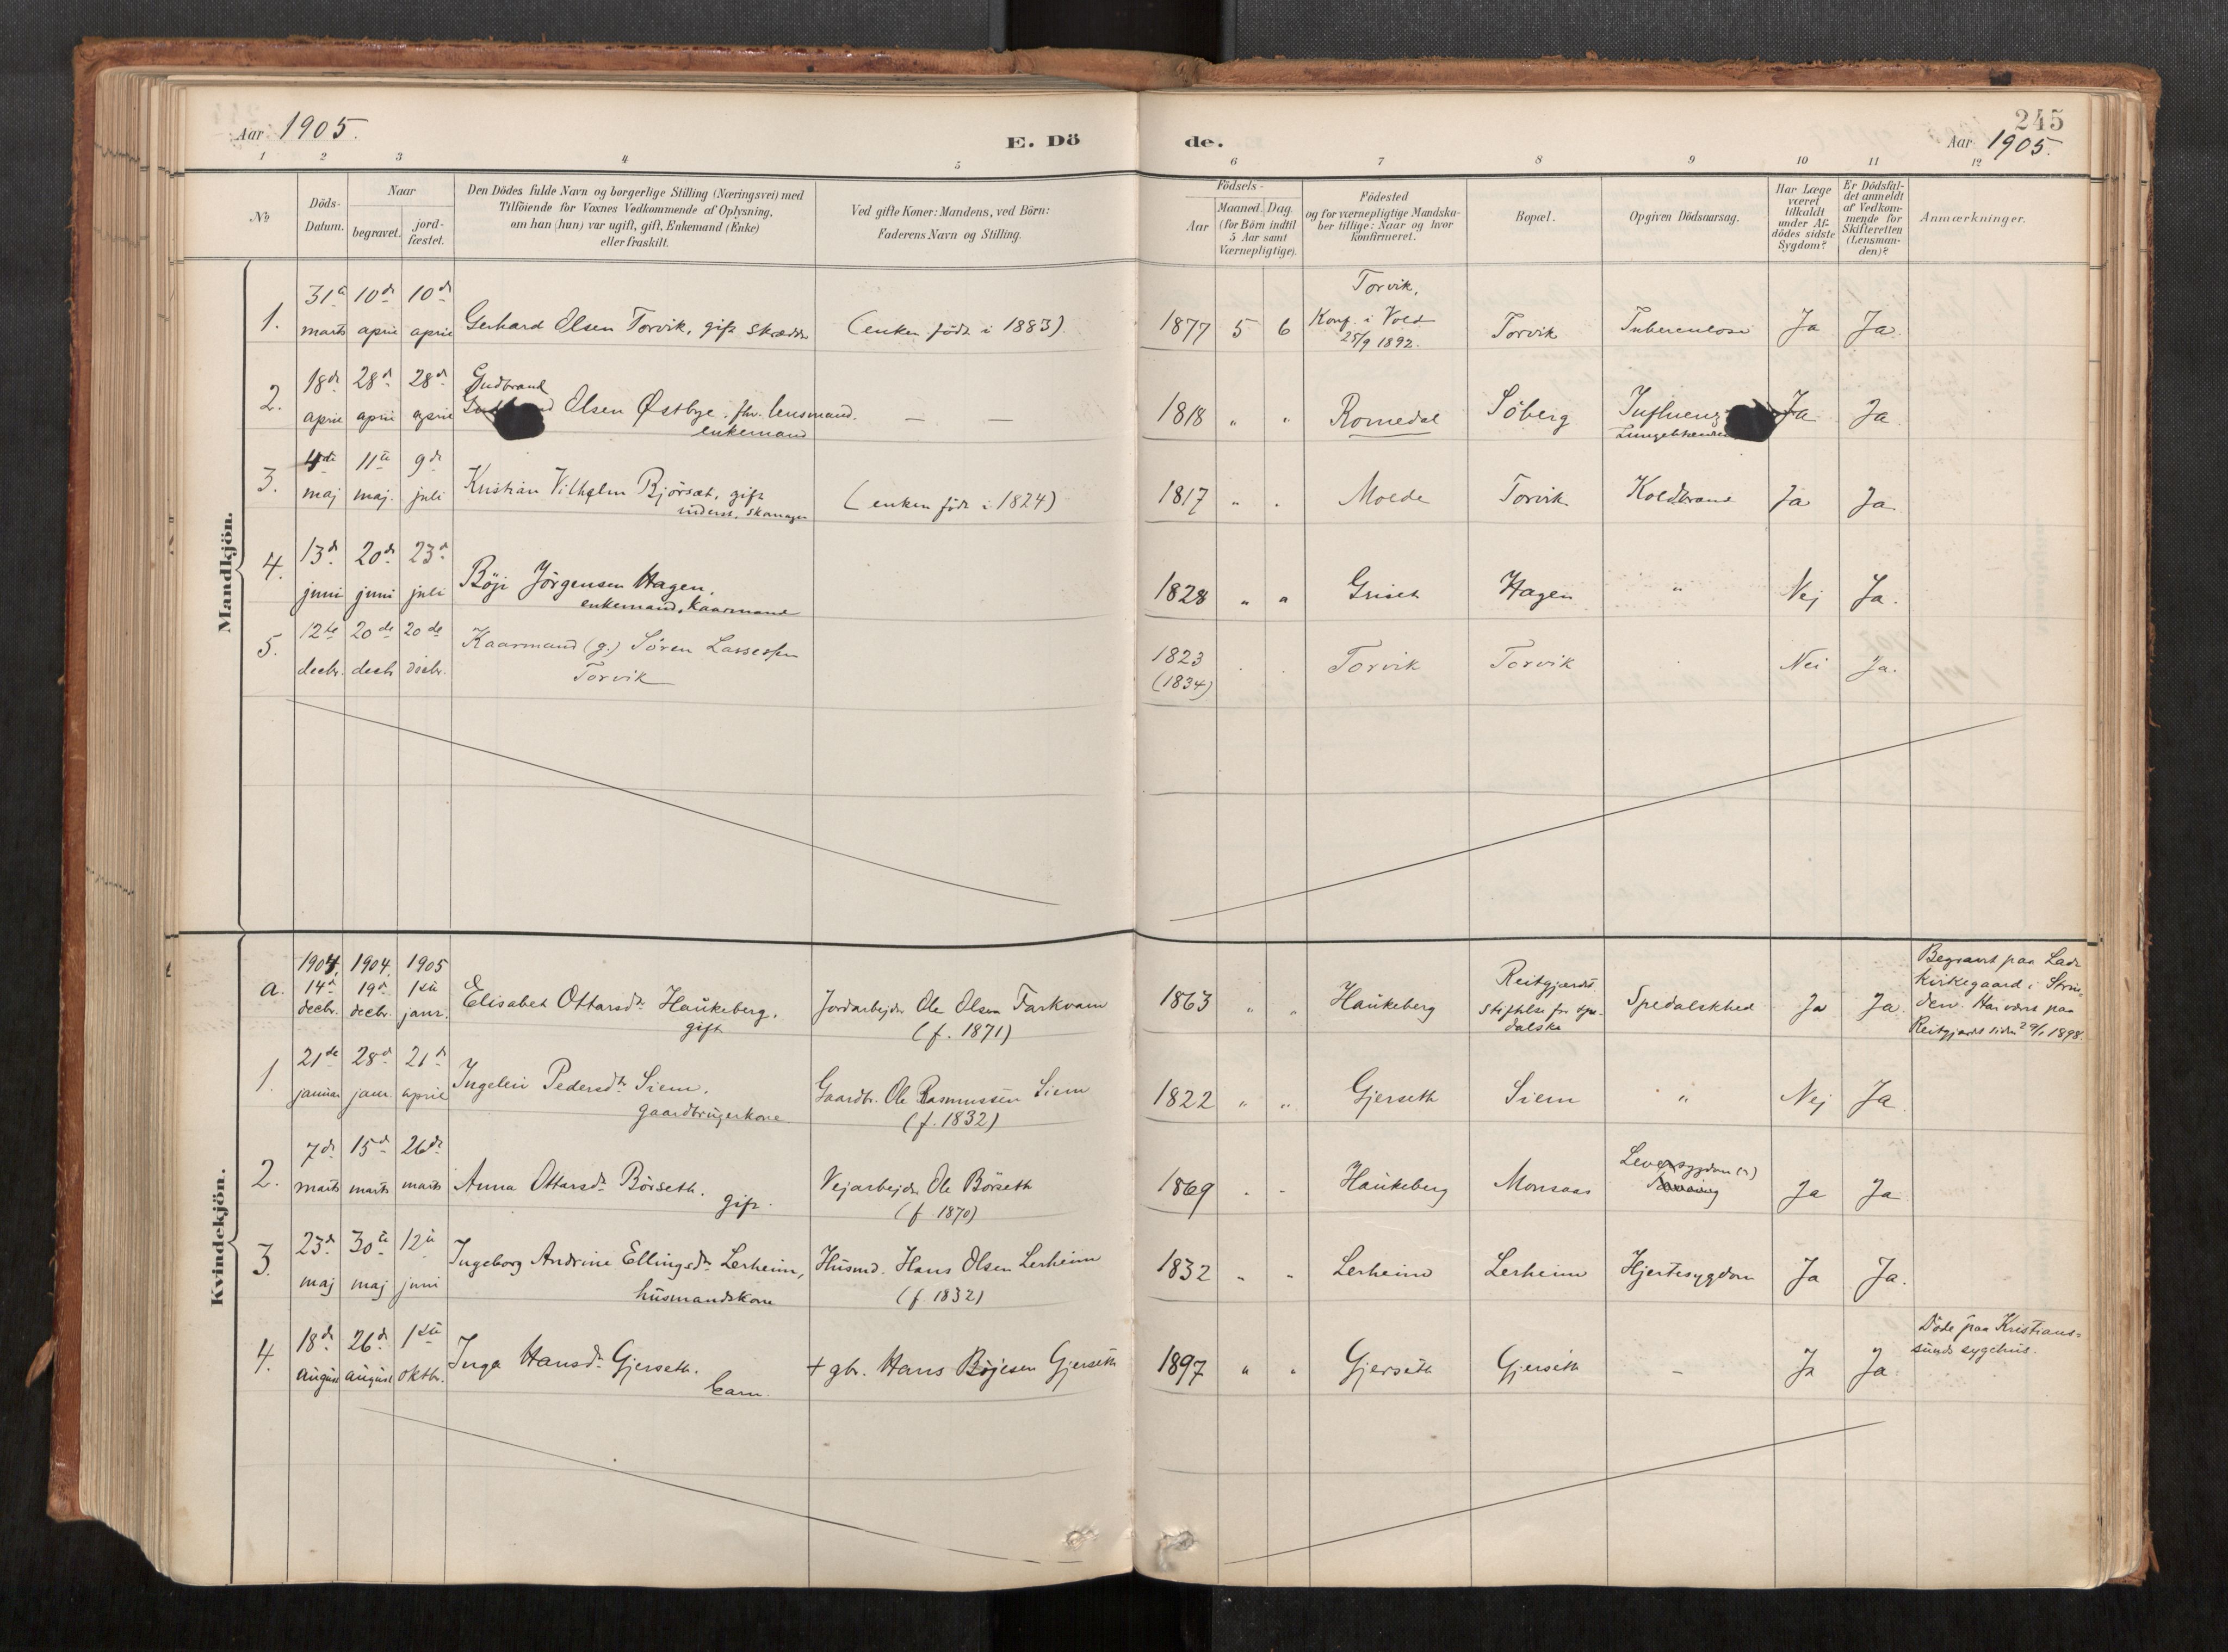 Aar 1905.
E. Dö
de.
245
Aar 1905.
1 2 3 4 5 6 7 8 9 10 11 12
No
Döds-
Datum.
Naar
begravet.
jord-
fæstet.
Den Dödes fulde Navn og borgerlige Stilling (Næringsvei) med
Tilföiende for Voxnes Vedkommende af Oplysning,
om han (hun) var ugift, gift, Enkemand (Enke)
eller fraskilt.
Ved gifte Koner: Mandens, ved Börn:
Faderens Navn og Stilling.
Födsels-
Aar
Maaned. Dag.
(for Börn indtil
5 Aar samt
Værnepligtige).
Födested
og for værnepligtige Mandska-
ber tillige: Naar og hvor
konfirmeret.
Bopæl.
Opgiven Dödsaarsag.
Har Læge
været
tilkaldt
under Af-
dödes sidste
Sygdom?
Er Dödsfal-
det anmeldt
af Vedkom-
mende for
Skifteretten
(Lensman-
den)?
Anmærkninger.
Mandkjön.
1.
31te 10de 10de
marts april april
Gerhard Olsen Torvik, gift skrædder
(enken födt i 1883).
1877 5 6
Torvik,
Konf. i Vold
25/9 1892.
Torvik
Tuberculose
Ja
Ja.
2.
18de 28de 28de
april april april
Gudbrand
Olsen Østbye, fhv. lensmand.
enkemand
— —
1818 " "
Romedal
Söberg
Influenza
Ja
Ja
3.
4de 11te 9de
maj maj. juli
Kristian Vilhelm Bjórsæt, gift
inderst, skomager
(enken födt i 1824)
1817 " "
Molde
Torvik
Koldbrand
Ja
Ja.
4.
13de 20de 23de
juni juni juli
Böje Jörgensen Hagen,
enkemand, kaarmand
1828 " "
Griset
Hagen
"
Nej
Ja.
5.
12te 20de 20de
decbr. decb. decbr.
Kaarmand (g.) Sören Lassesen
Torvik
1823
(1834)
Torvik
Torvik
Nei
Ja.
Kvindekjön.
a.
1904. 1904. 1905
14de 19de 1ste
decbr. decbr. janr.
Elisabet Ottarsdr. Haukeberg,
gift
Jordarbejder Ole Olsen Farkvam
(f. 1871)
1863 " "
Haukeberg
Reitgjærdet
Stiftelse for spe-
dalske
Spedalskhed
Ja
Ja.
Begravet paa Lade
kirkegaard i Strin-
den. Har været paa
Reitgjærdet siden 29/1 1898.
1.
21de 28de 21de
januar janr. april
Ingeleiv Pedersdr. Siem,
gaardbrugerkone
Gaardbr. Ole Rasmussen Siem
(f. 1832)
1822 " "
Gjerseth
Siem
"
Nej
Ja.
2.
7de 15de 26de
marts marts marts
Anna Ottarsdr. Börseth,
gift.
Vejarbejder Ole Börseth
(f. 1870)
1869 " "
Haukeberg
Monsaas
Leversygdom (?)
Ja
Ja
3.
23de 30te 12te
maj maj juni
Ingeborg Andrine Ellingsdr. Lerheim,
husmandskone
Husmd. Hans Olsen Lerheim
(f. 1832)
1832 " "
Lerheim
Lerheim
Hjertesygdom
Ja
Ja.
4.
18de 26de 1ste
august august oktbr.
Inga Hansdr. Gjerseth,
barn.
+ gbr. Hans Böjesen Gjerseth
1897 " "
Gjerseth
Gjerseth
—
Ja
Ja.
Döde paa Kristians=
sunds sygehus.